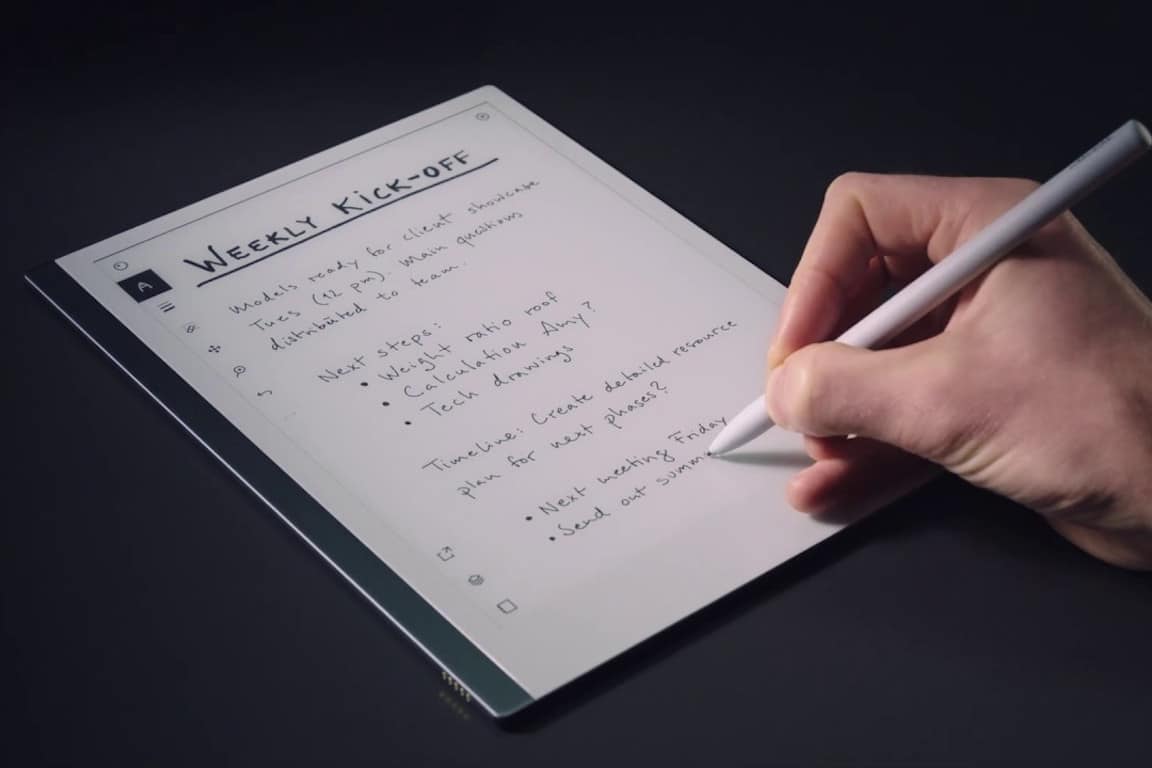 WEEKLY KICK-OFF
A
Models ready for client showcase
Tues (12 pm). Main questions
distributed to team.
Next steps:
• Weight ratio roof
• Calculation Amy?
• Tech drawings
Timeline: Create detailed resource
plan for next phases?
• Next meeting Friday
• Send out summ